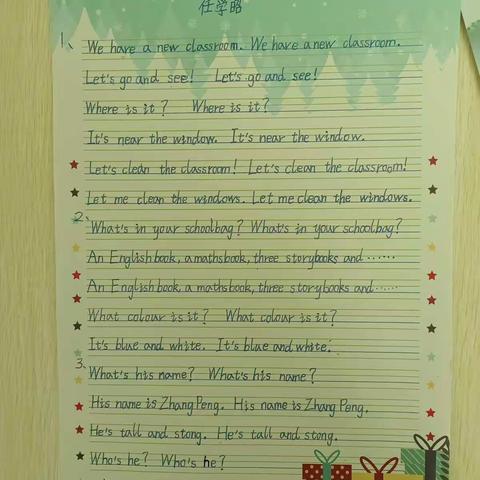 任学路
1、We have a new classroom. We have a new classroom.
Let's go and see! Let's go and see!
Where is it? Where is it?
It's near the window. It's near the window.
Let's clean the classroom! Let's clean the classroom!
Let me clean the windows. Let me clean the windows.
2、What's in your schoolbag? What's in your schoolbag?
An English book, a maths book, three storybooks and ......
An English book, a maths book, three storybooks and ......
What colour is it? What colour is it?
It's blue and white. It's blue and white.
3、What's his name? What's his name?
His name is Zhang Peng. His name is Zhang Peng.
He's tall and stong. He's tall and stong.
Who's he? Who's he?